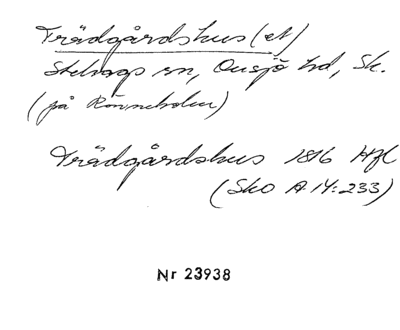 Trädgårdshus (et)
Stehags sn, Onsjö hd, Sk.
(på Rönneholm)
Trädgårdshus 1816 Hfl
(Sko A 14:233)
Nr 23938